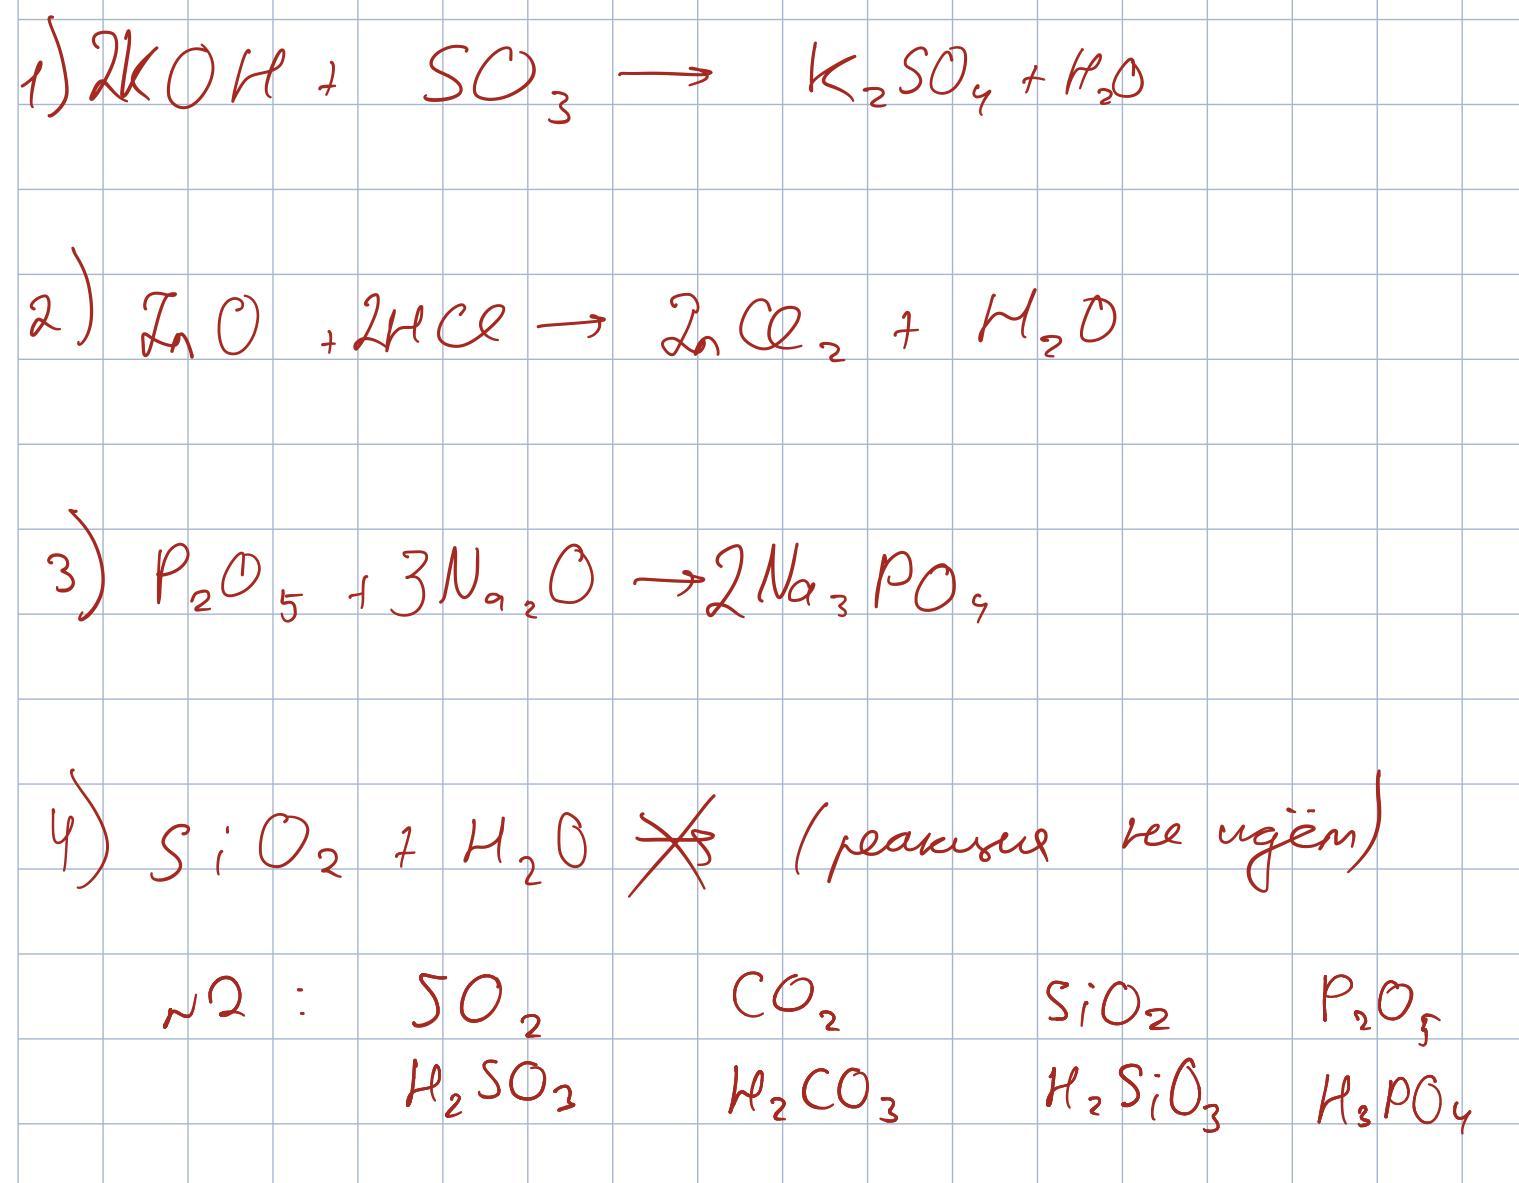 1) 2KOH + SO₃ → K₂SO₄ + H₂O
2) ZnO + 2HCl → ZnCl₂ + H₂O
3) P₂O₅ + 3Na₂O → 2Na₃PO₄
4) SiO₂ + H₂O (реакция не идёт)
№2 : SO₂ CO₂ SiO₂ P₂O₅
H₂SO₃ H₂CO₃ H₂SiO₃ H₃PO₄